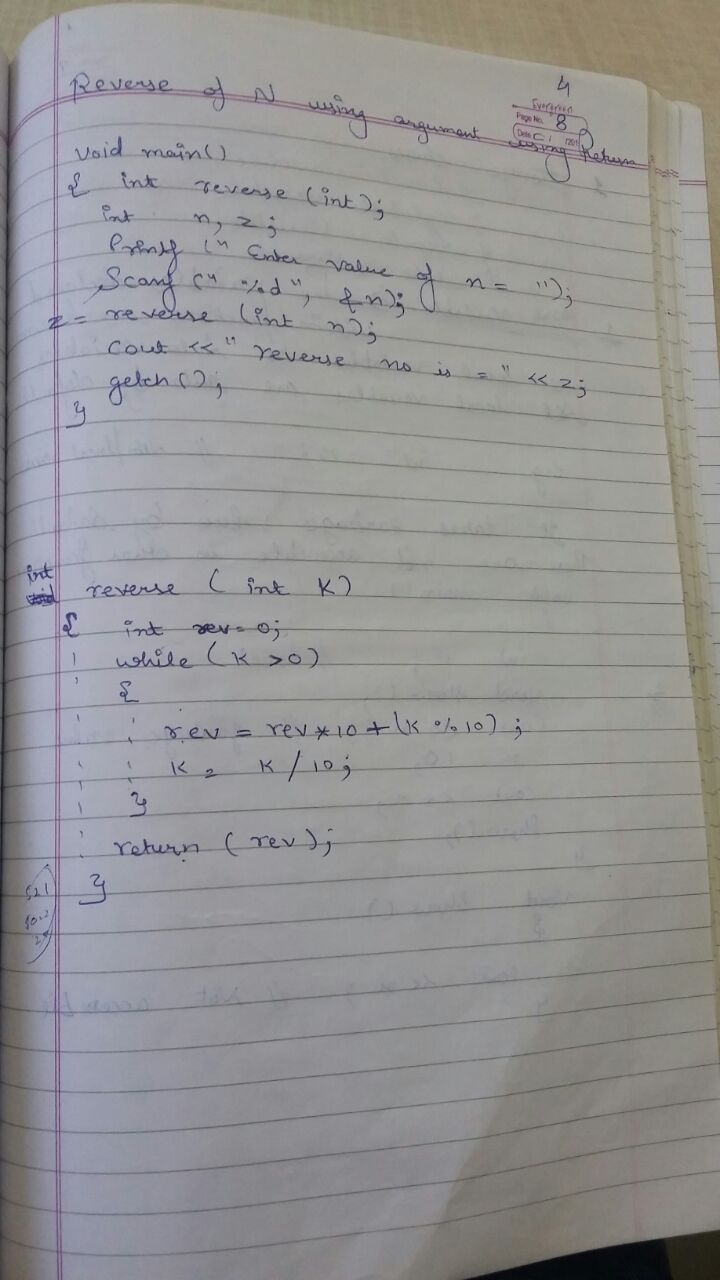 4
Evergreen
Page No. 8
Reverse of N using argument using Return
void main()
{ int reverse (int);
int n, z;
Printf (" Enter value of n = ");
Scanf (" %d", &n);
z = reverse (int n);
cout <<" reverse no is = " << z;
getch();
}
int
reverse ( int K)
{ int rev = 0;
while ( K > 0)
{
rev = rev * 10 + (K % 10) ;
K = K / 10;
}
return ( rev );
}
521